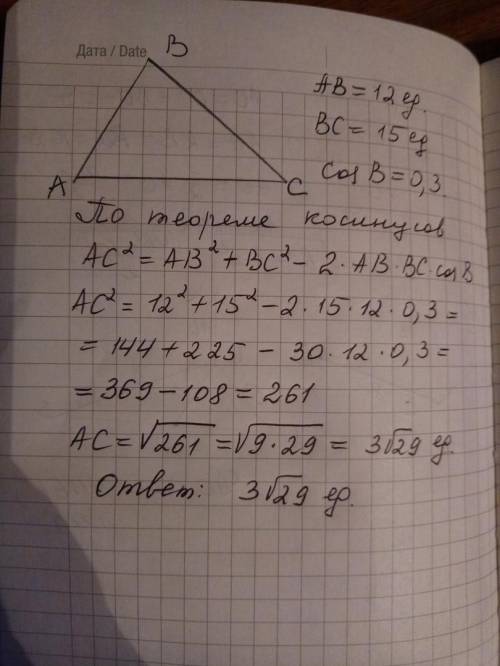 Дата / Date
B
AB = 12 ед.
BC = 15 ед
cos B = 0,3.
A
C
По теореме косинусов
AC² = AB² + BC² - 2 · AB · BC · cos B
AC² = 12² + 15² - 2 · 15 · 12 · 0,3 =
= 144 + 225 - 30 · 12 · 0,3 =
= 369 - 108 = 261
AC = √261 = √9 · 29 = 3√29 ед.
Ответ: 3√29 ед.